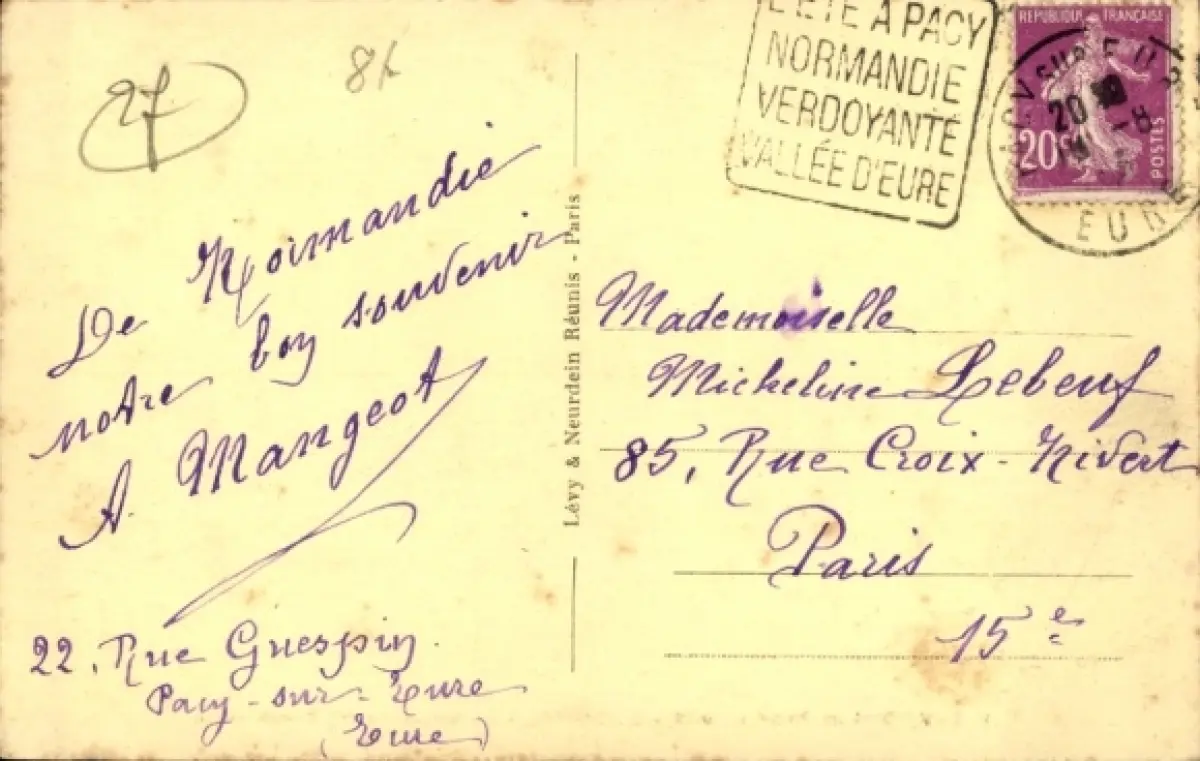 27
L'ÉTÉ A PACY
NORMANDIE
VERDOYANTE
VALLÉE D'EURE
REPUBLIQUE FRANÇAISE
20c
POSTES
PACY SUR EURE
20
-8
EURE
De Normandie
notre bon souvenir
A. Mangeot
22, Rue Guespin
Pacy-sur-Eure
(Eure)
Lévy & Neurdein Réunis - Paris
Mademoiselle
Micheline Lebeuf
85, Rue Croix-Nivert
Paris
15e